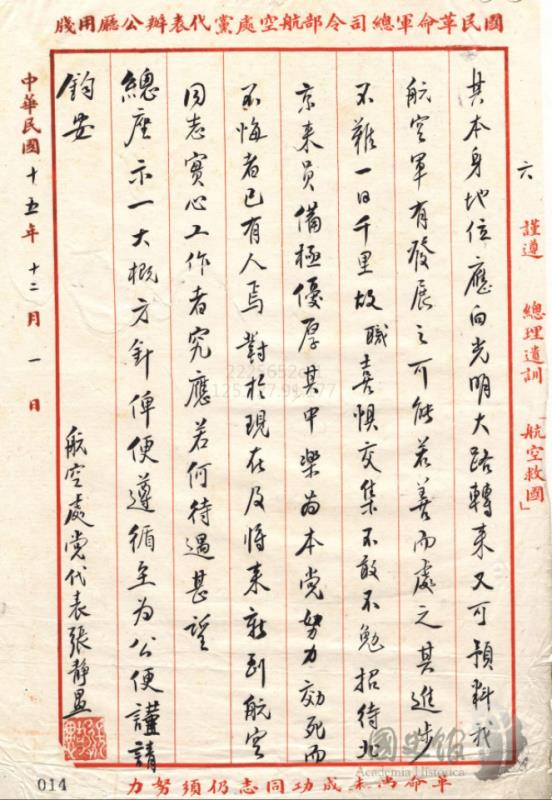 國民革命軍總司令部航空處黨代表辦公廳用牋
六
謹遵 總理遺訓 航空救國」
其本身地位應向光明大路轉來又可預料我
航空軍有發展之可能若善而處之其進步
不難一日千里故職喜懼交集不敢不勉招待北
京來員備極優厚其中樂為本党努力効死而
不悔者已有人焉對於現在及將來新到航空
同志實心工作者究應若何待遇甚望
總座示一大概方針俾便遵循至為公便謹請
鈞安
航空處党代表張靜愚
中華民國十五年十二月一日
革命尚未成功同志仍須努力
014
國史館
Academia Historica